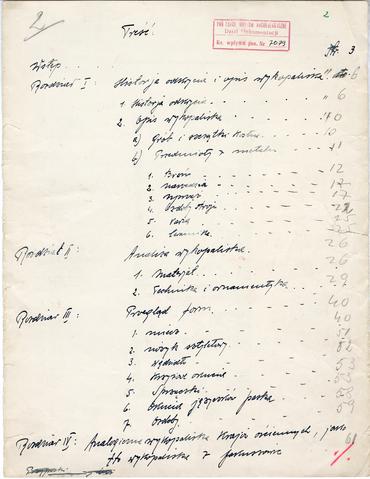 2
Treść.
Dział Dokumentacji
Ks. wpływu poz. Nr 7079
2
Str. 3
Wstęp
Rozdział I: Historja odkrycia i opis wykopaliska 6
1. Historja odkrycia " 6
2. Opis wykopaliska " 10
a) Grób i szczątki 10
b) Przedmioty z metalu 11
1. Broń 12
2. narzędzia 17
3. 17
4. Ozdoby stroju
5. Varia 25
6. Ceramika 25
Rozdział II: Analiza wykopaliska 26
1. materjał 26
2. Technika i ornamentyka 29
Rozdział III: Przegląd form 40
1. miecz 40
2. 51
3. Wędzidło 52
4. 53
5. Sprzączki 53
6. Okucia języczków paska 58
7. Ozdoby 59
Rozdział IV: Analogiczne wykopaliska krajów ościennych, jako 61
tło wykopaliska z